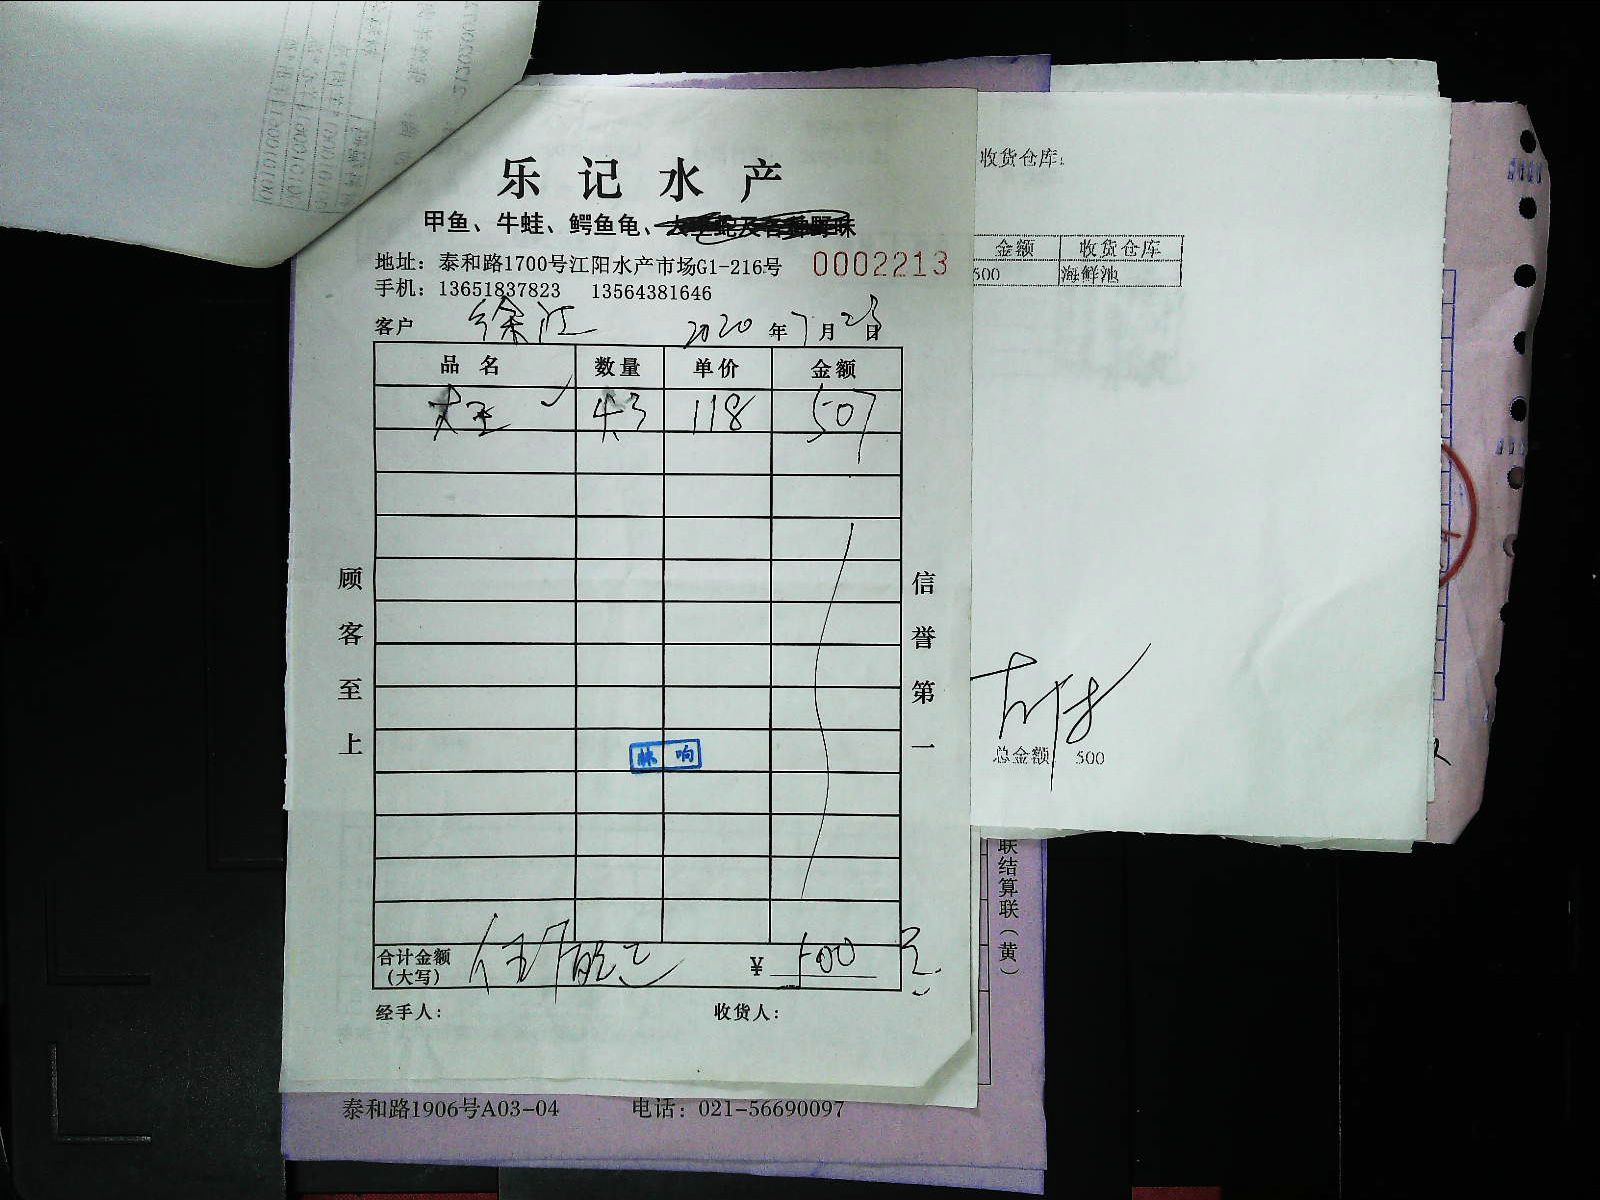 乐记水产
甲鱼、牛蛙、鳄鱼龟、
地址：泰和路1700号江阳水产市场G1-216号
0002213
手机：13651837823 13564381646
客户 徐江 2020年7月23日
品名 数量 单价 金额
大王 4.3 118 507
顾客至上
信誉第一
合计金额（大写） 伍佰 ¥ 500 元
经手人： 收货人：
收货仓库：
金额 收货仓库
500 海鲜池
总金额 500
联结算联（黄）
泰和路1906号A03-04 电话：021-56690097